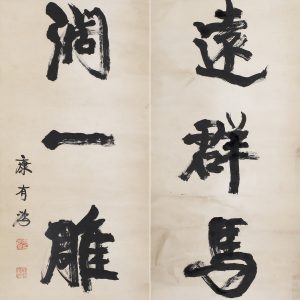 遠群馬
濶一雕
康有為